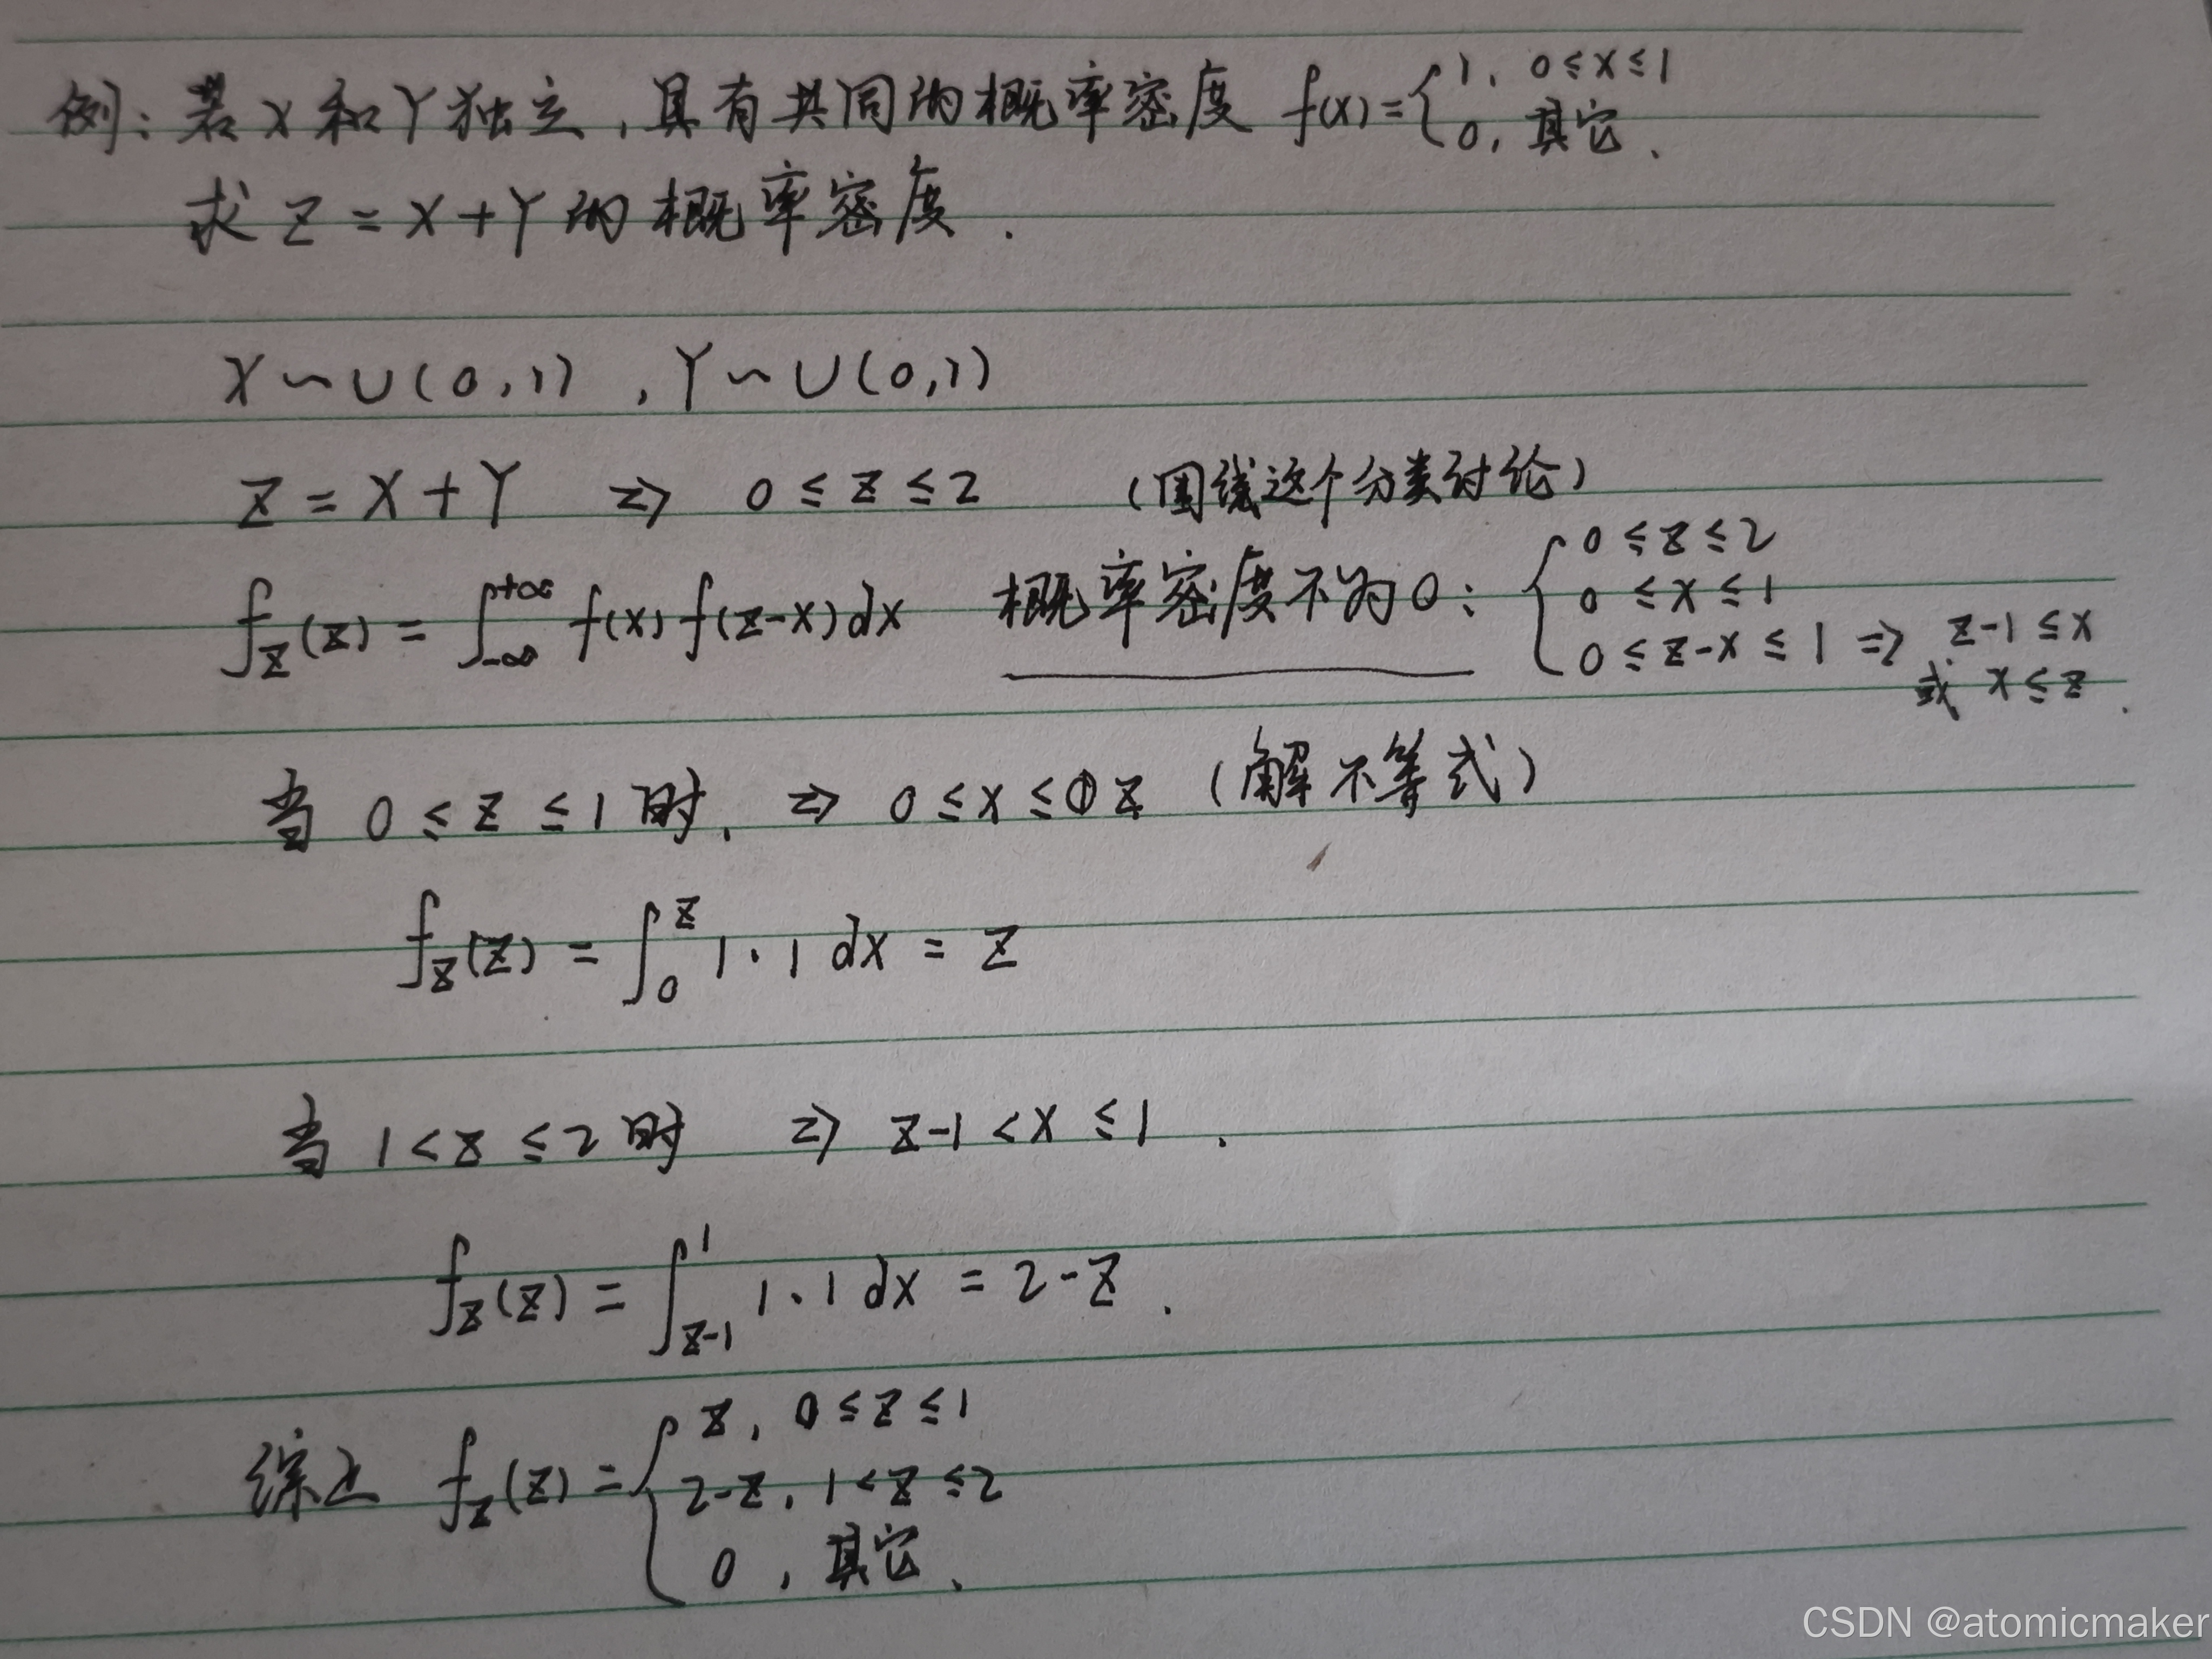 例：若X和Y独立，具有共同的概率密度 f(x)={1, 0≤x≤1
0, 其它.
求 Z=X+Y的概率密度.
X~U(0,1) , Y~U(0,1)
Z=X+Y ⇒ 0≤z≤2 (围线这个分类讨论)
f_Z(z)=∫_{-∞}^{+∞} f(x)f(z-x)dx 概率密度不为0: {0≤z≤2
0≤x≤1
0≤z-x≤1 ⇒ z-1≤x
或 x≤z.
当 0≤z≤1时, ⇒ 0≤x≤z (解不等式)
f_Z(z)=∫_0^z 1·1 dx = z
当 1<z≤2时 ⇒ z-1<x≤1.
f_Z(z)=∫_{z-1}^1 1·1 dx = 2-z.
综上 f_Z(z)={z, 0≤z≤1
2-z, 1<z≤2
0, 其它.
CSDN @atomicmaker